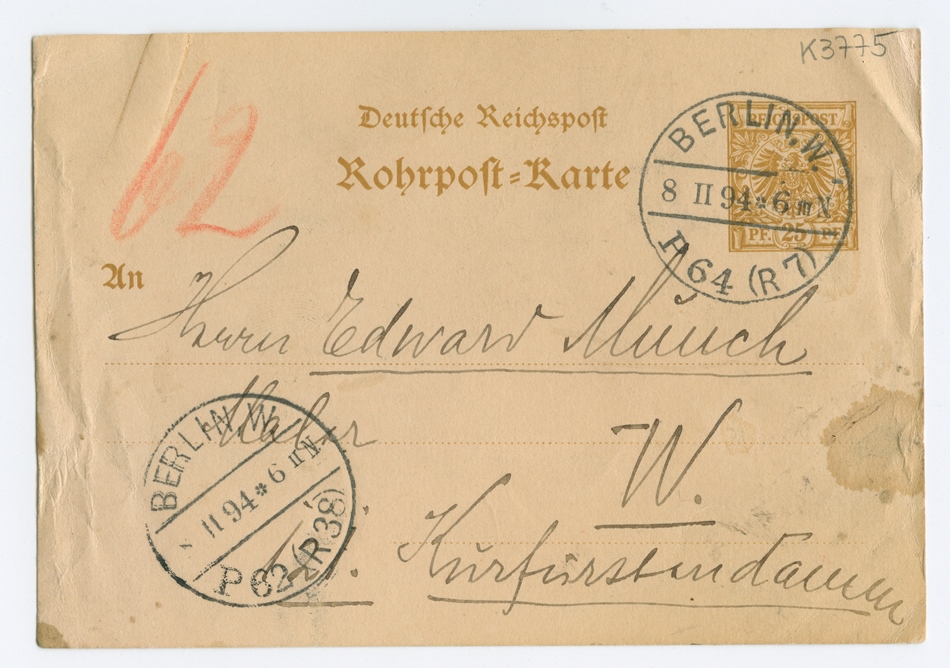 K3775
62
Deutsche Reichspost
Rohrpost-Karte
REICHSPOST
PF. 25 PF.
BERLIN.W.
8 II 94 * 6 N
P 64 (R 7)
An
Herrn Edward Munch
Maler
BERLIN.W.
II 94 * 6 N
P 62 (R 38)
W.
Kurfürstendamm